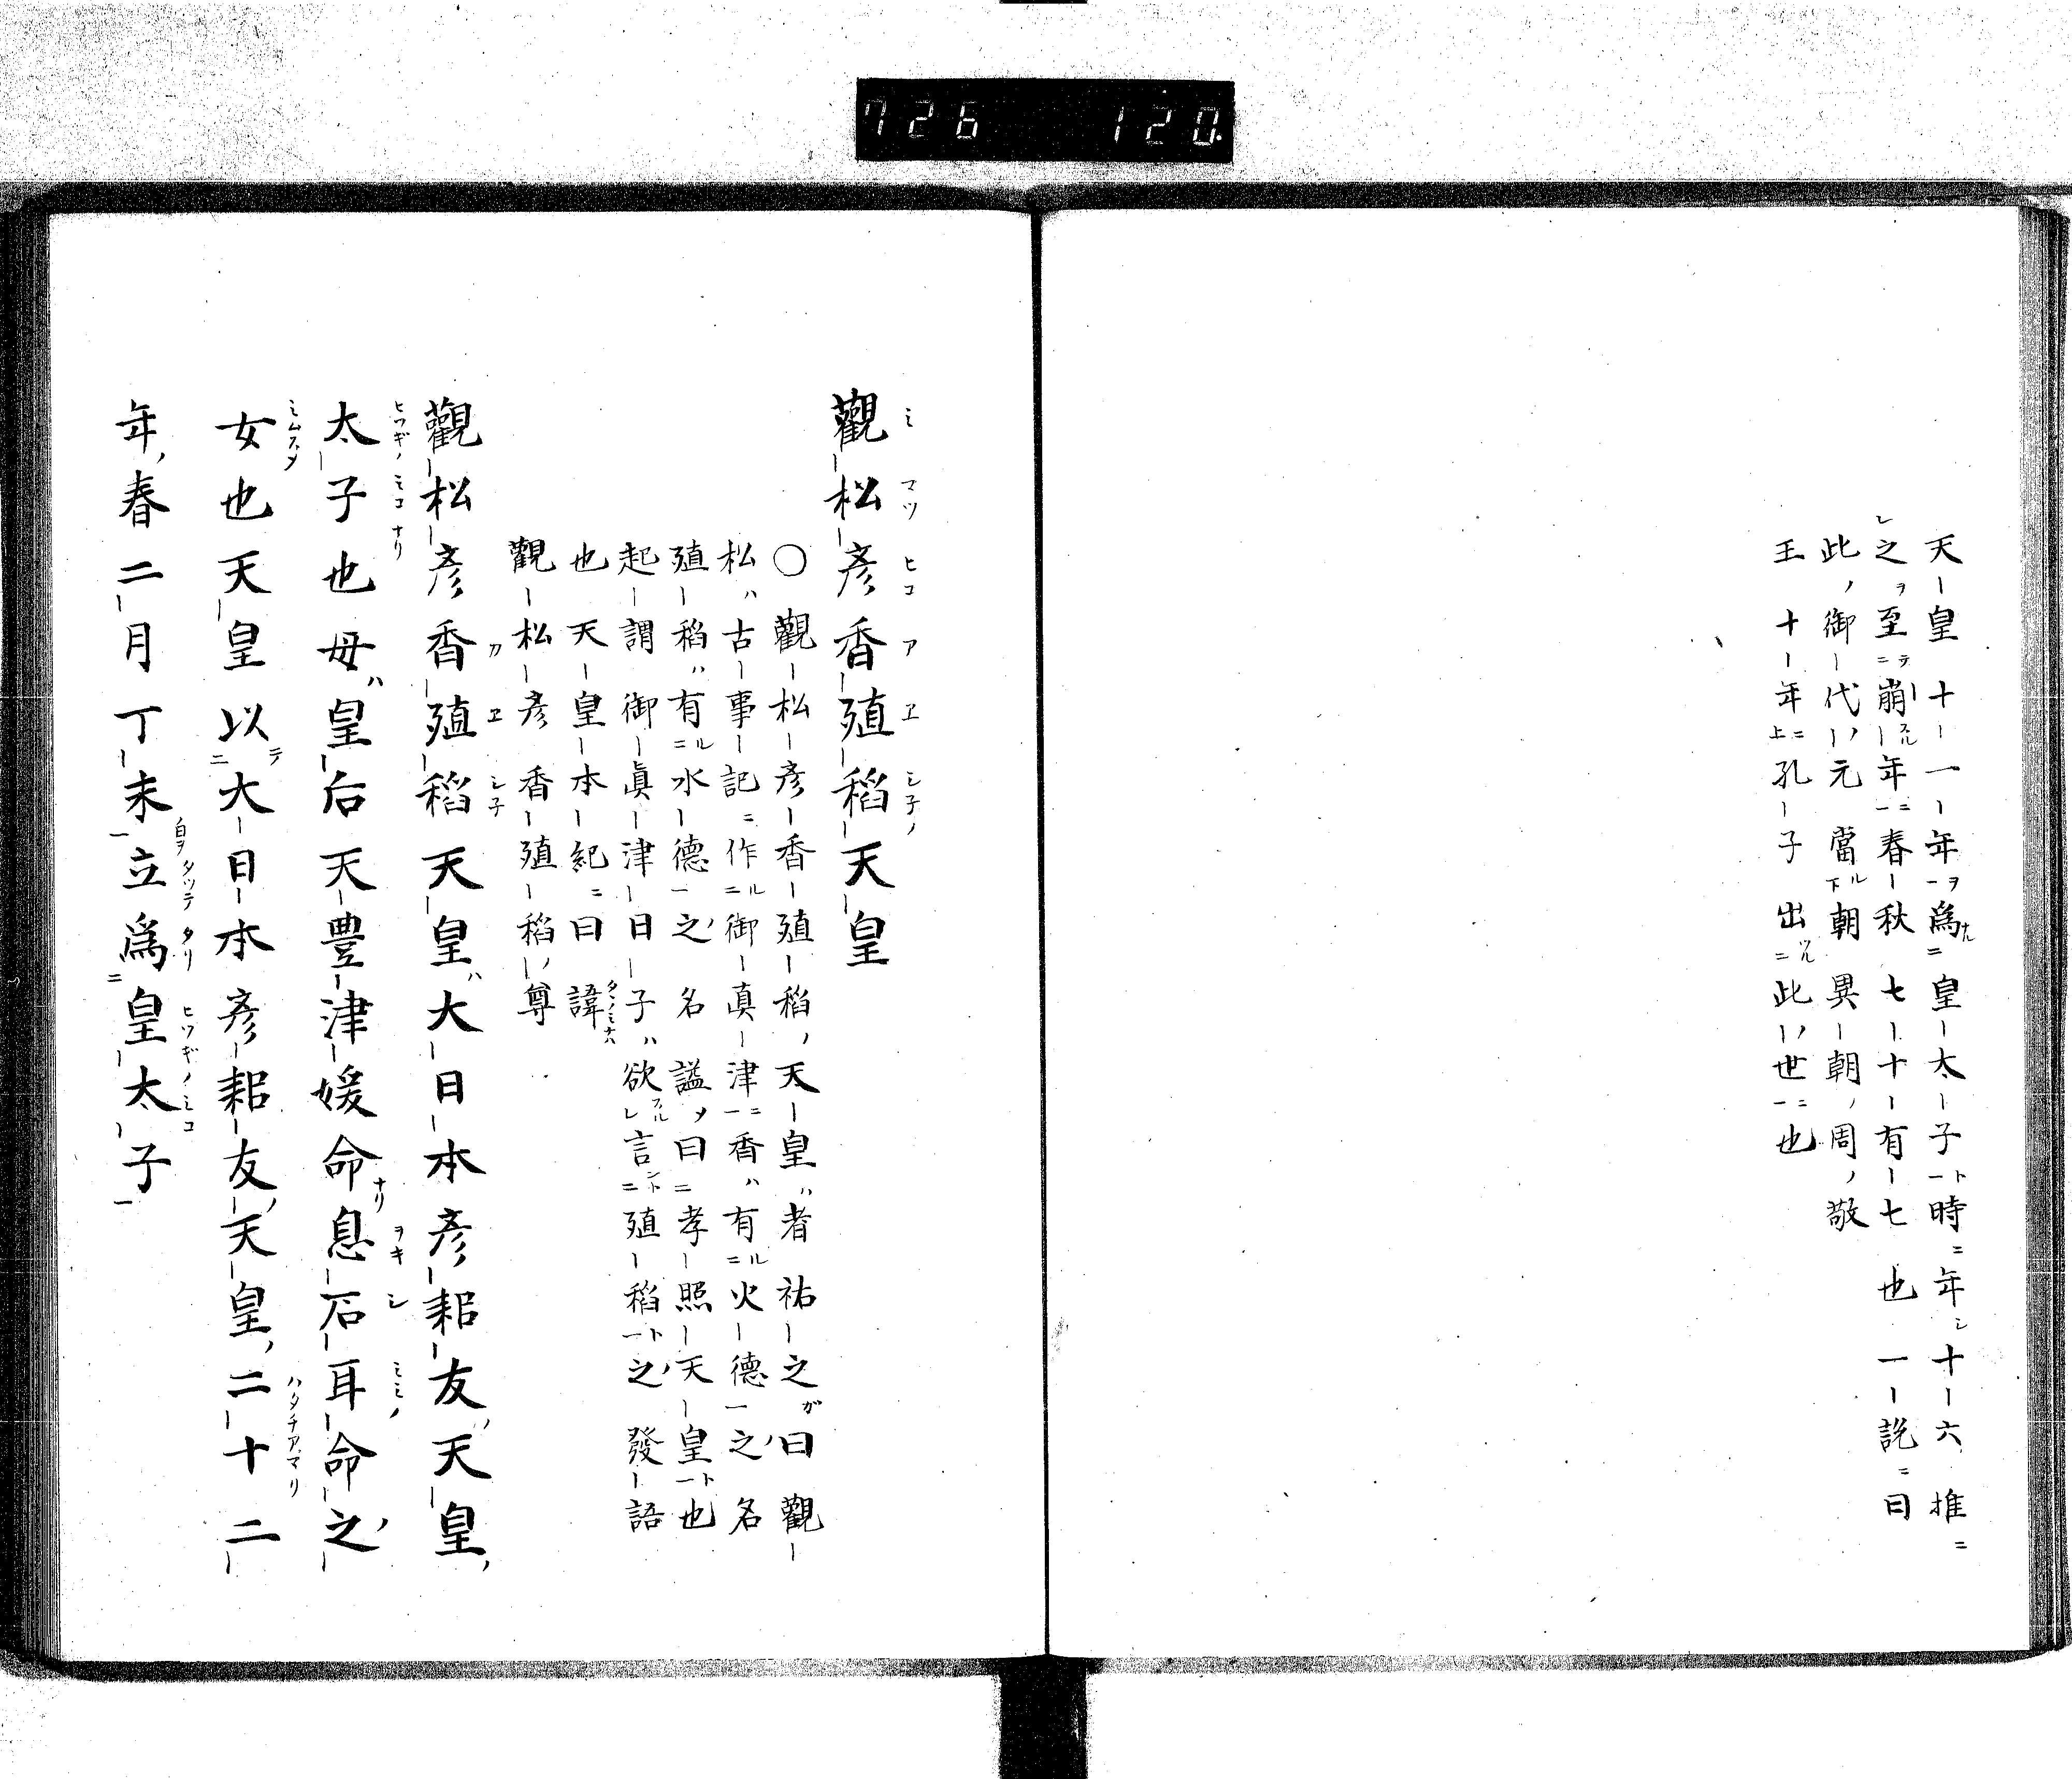 726 120.
天皇十一年爲皇太子時年十六推
之至崩年春秋七十有七也一説曰
此御代元當朝異朝周敬
王十年孔子出此世也
觀松彦香殖稻天皇
○觀松彦香殖稻天皇者祐之曰觀
松古事記作御眞津香有火德之名
殖稻有水德之名謚曰孝照天皇也
起謂御眞津日子欲言殖稻之發語
也天皇本紀曰諱
觀松彦香殖稻尊
觀松彦香殖稻天皇大日本彦耜友天皇
太子也母皇后天豊津媛命息石耳命之
女也天皇以大日本彦耜友天皇二十二
年春二月丁未立爲皇太子